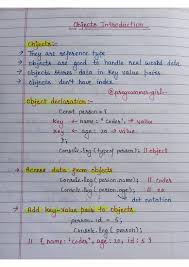 Objects Introduction
Objects:-
→ They are reference type
→ objects are good to handle real world data
→ objects stores data in key value pairs
→ objects don't have index.
@programmer-girl-
Object declaration:-
Const person = {
key ← name : "Coder", → value
key ← age : 20 → value
};
Console.log (typeof person); || object
→ Access data from objects
Console.log (person.name); || coder
Console.log (person.age); || 20
dot notation
→ Add key-value pair to objects
person.id = 5;
Console.log (person);
|| { name: "coder", age: 20, id: 5 }